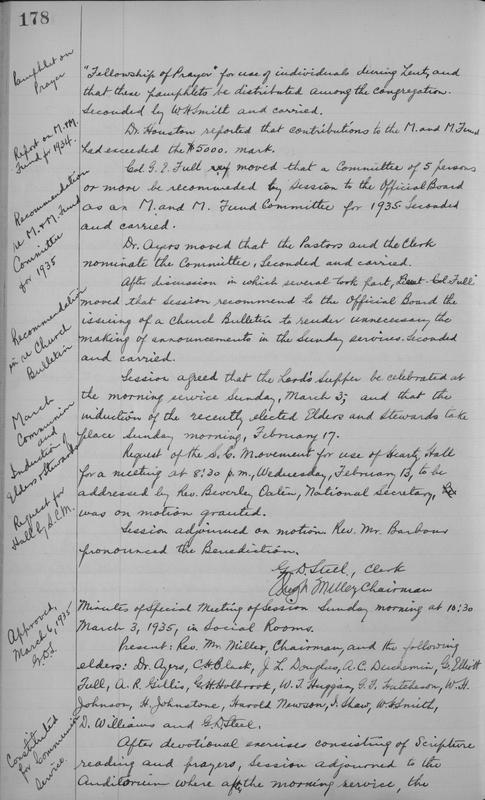 178
Pamphlet on
Prayer
"Fellowship of Prayer" for use of individuals during Lent, and
that these pamphlets be distributed among the congregation.
Seconded by W H Smith and carried.
Report on M.&M.
Fund for 1934.
Dr. Houston reported that contributions to the M. and M Fund
had exceeded the $5000. mark.
Recommendation
re M. & M. Fund
Committee
for 1935
Col G. E. Full moved that a Committee of 5 persons
or more be recommended by Session to the Official Board
as an M. and M. Fund Committee for 1935. Seconded
and carried.
Dr. Ayers moved that the Pastors and the Clerk
nominate the Committee, Seconded and carried.
Recommendation
in re Church
Bulletin
After discussion in which several took part, Lieut Col Full
moved that Session recommend to the Official Board the
issuing of a Church Bulletin to render unnecessary the
making of announcements in the Sunday services. Seconded
and carried.
March
Communion
and
Induction of
Elders & Stewards
Session agreed that the Lord's Supper be celebrated at
the morning service Sunday, March 3; and that the
induction of the recently elected Elders and Stewards take
place Sunday morning, February 17.
Request for
Hall by S.C.M.
Request of the S.C. Movement for use of Heartz Hall
for a meeting at 8:30 p.m., Wednesday, February 13, to be
addressed by Rev. Beverley Oaten, National Secretary,
was on motion granted.
Session adjourned on motion. Rev. Mr. Barbour
pronounced the Benediction.
G. D. Steel, Clerk
Miller Chairman
Approved,
March 6, 1935
G.D.S.
Minutes of Special Meeting of Session Sunday morning at 10:30
March 3, 1935, in Social Rooms.
Present: Rev. Mr. Miller, Chairman, and the following
elders: Dr. Ayers, C H Black, J. L. Douglas, A. C. Duchemin, G. Elliott
Full, A. R. Gillis, G. H. Holbrook, W. T. Huggan, G. F. Hutcheson, W. H.
Johnson, H. Johnstone, Harold Newson, J. Shaw, W H Smith,
D. Williams and G. D. Steel.
Constituted
for Communion
Service.
After devotional exercises consisting of Scripture
reading and prayers, Session adjourned to the
Auditorium where after the morning service, the